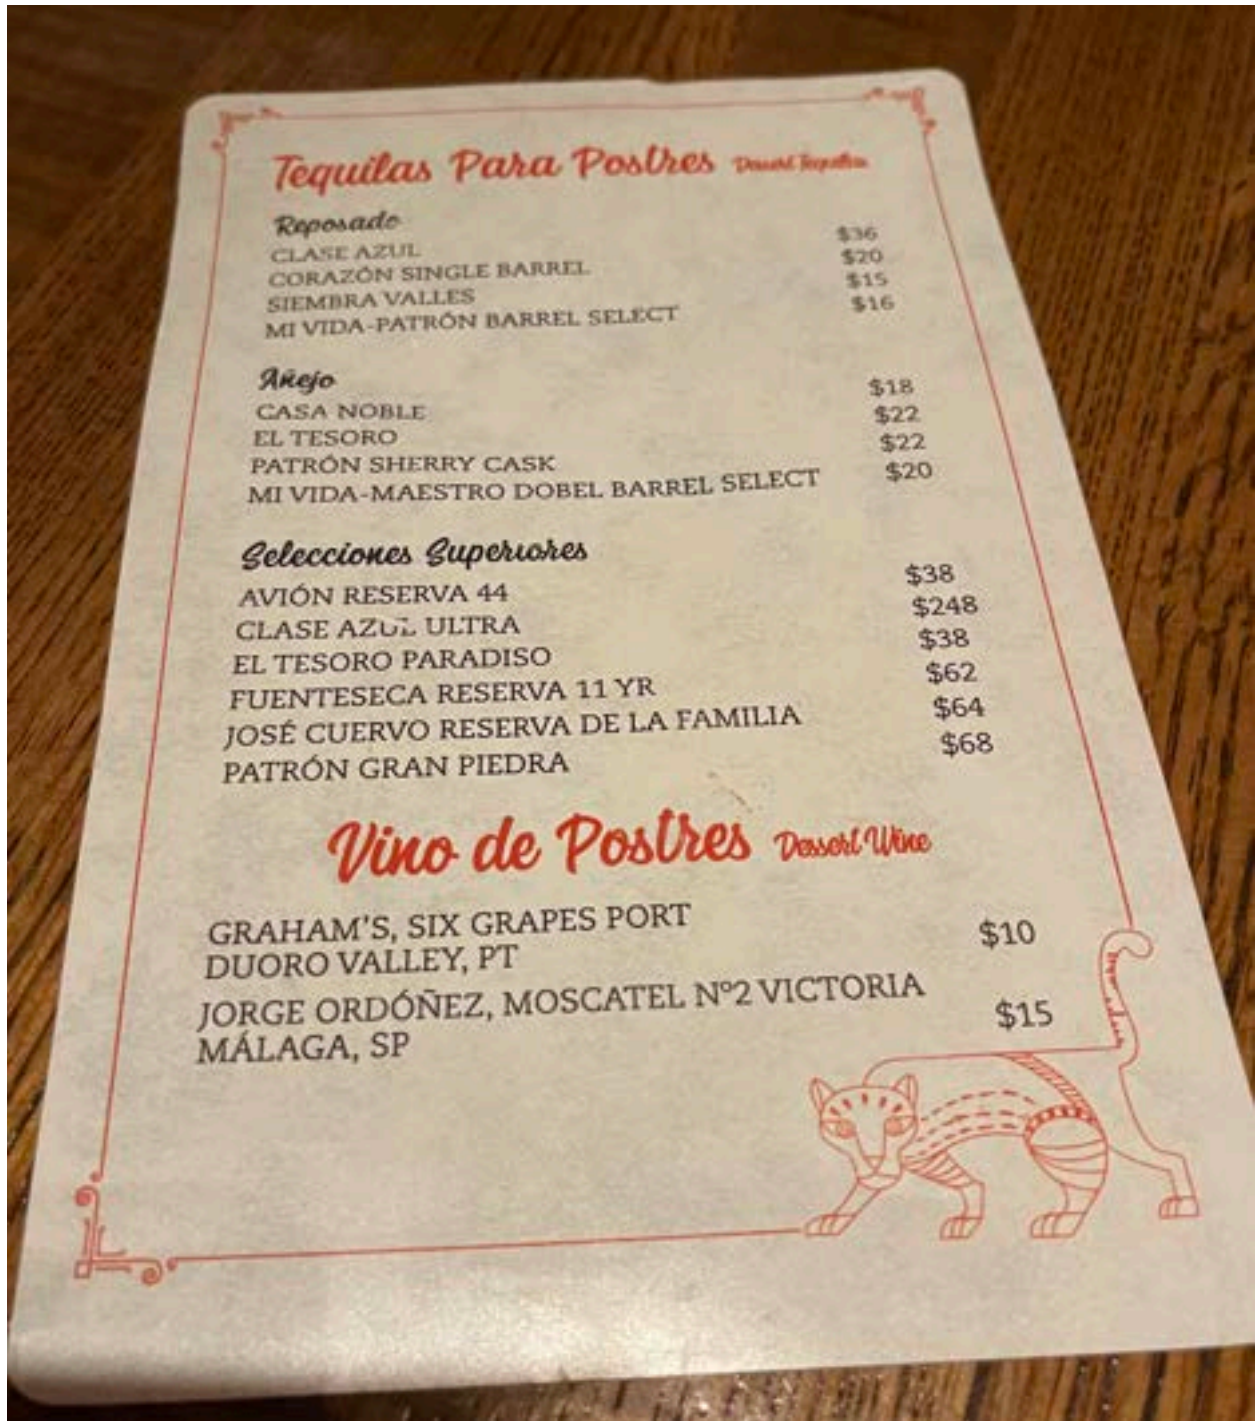 Tequilas Para Postres Dessert Tequilas
Reposado
CLASE AZUL $36
CORAZÓN SINGLE BARREL $20
SIEMBRA VALLES $15
MI VIDA-PATRÓN BARREL SELECT $16
Añejo
CASA NOBLE $18
EL TESORO $22
PATRÓN SHERRY CASK $22
MI VIDA-MAESTRO DOBEL BARREL SELECT $20
Selecciones Superiores
AVIÓN RESERVA 44 $38
CLASE AZUL ULTRA $248
EL TESORO PARADISO $38
FUENTESECA RESERVA 11 YR $62
JOSÉ CUERVO RESERVA DE LA FAMILIA $64
PATRÓN GRAN PIEDRA $68
Vino de Postres Dessert Wine
GRAHAM'S, SIX GRAPES PORT $10
DUORO VALLEY, PT
JORGE ORDÓÑEZ, MOSCATEL Nº2 VICTORIA $15
MÁLAGA, SP